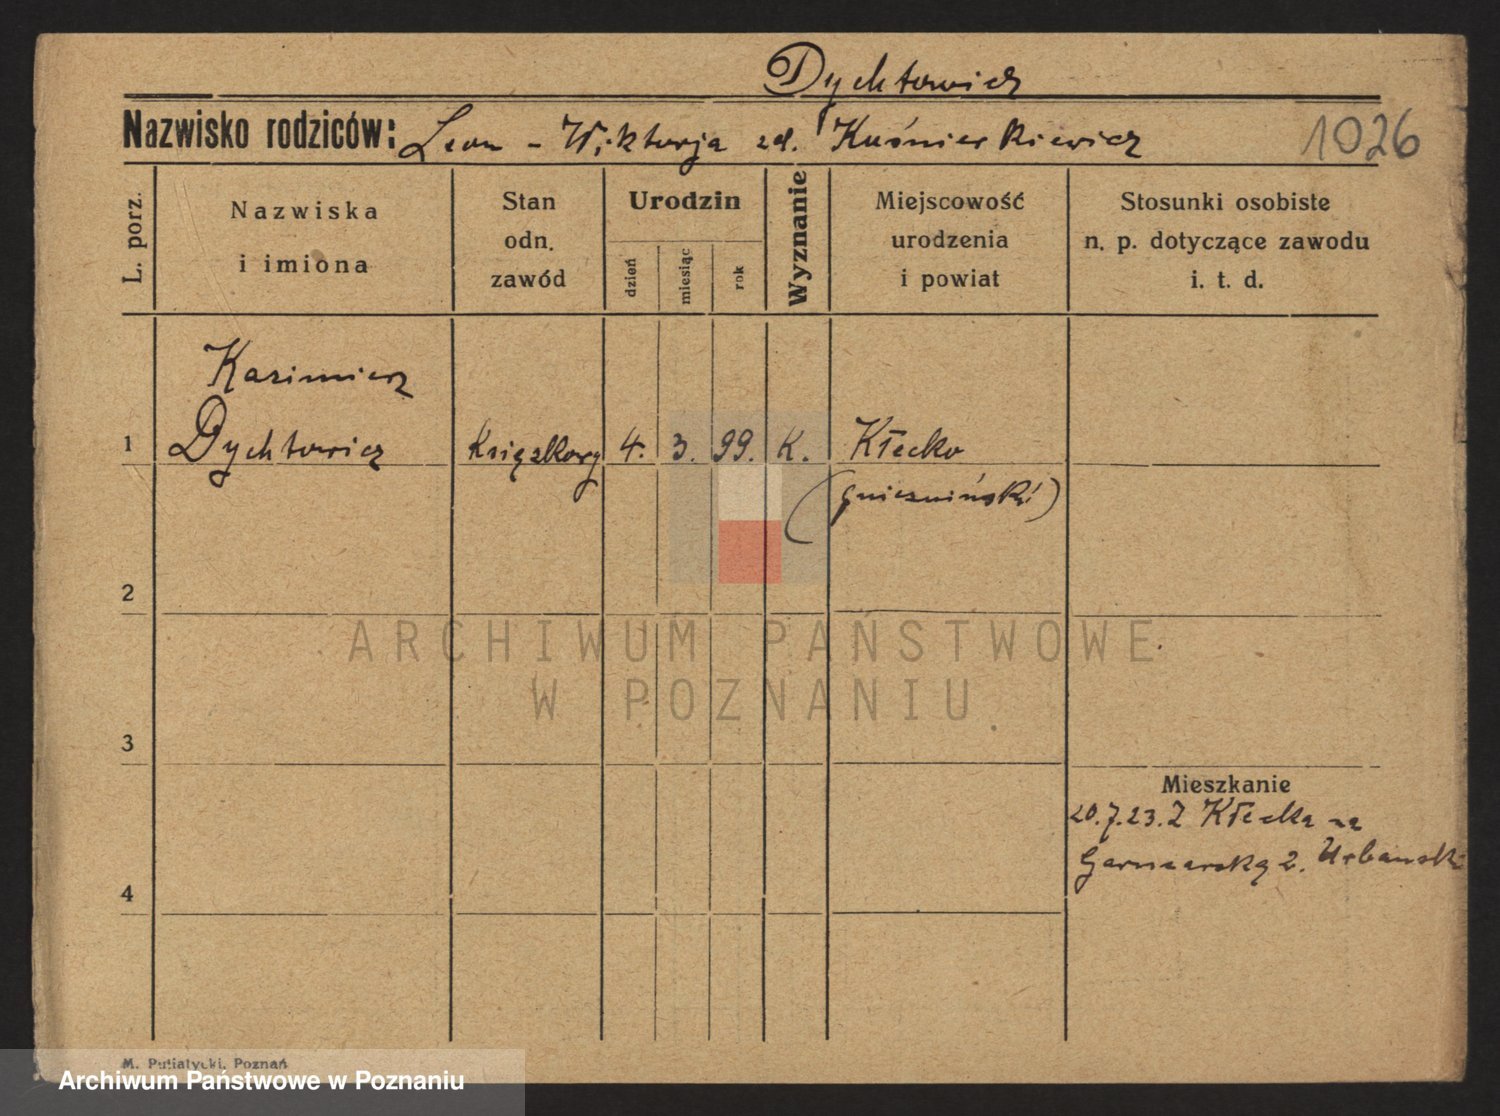 Dychtowicz
Nazwisko rodziców: Leon - Wiktorja zd. Kuśnierkiewicz
1026
L. porz.
Nazwiska
i imiona
Stan
odn.
zawód
Urodzin
dzień
miesiąc
rok
Wyznanie
Miejscowość
urodzenia
i powiat
Stosunki osobiste
n. p. dotyczące zawodu
i. t. d.
Kazimierz
1 Dychtowicz Książkowy 4. 3. 99. K. Kłecko
(gnieźnińskí)
2
ARCHIWUM PAŃSTWOWE
W POZNANIU
3
Mieszkanie
20.7.23. Z Kłecka na
Garncarską 2. Urbański
4
M. Putiatycki, Poznań
Archiwum Państwowe w Poznaniu